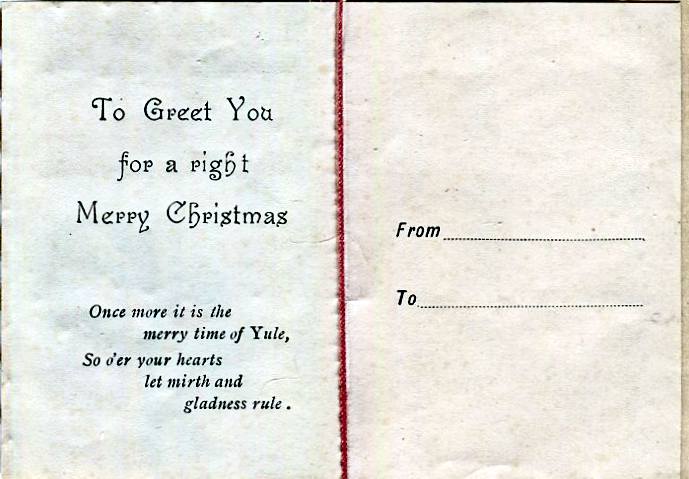 To Greet You
for a right
Merry Christmas
Once more it is the
merry time of Yule,
So o'er your hearts
let mirth and
gladness rule .
From
To